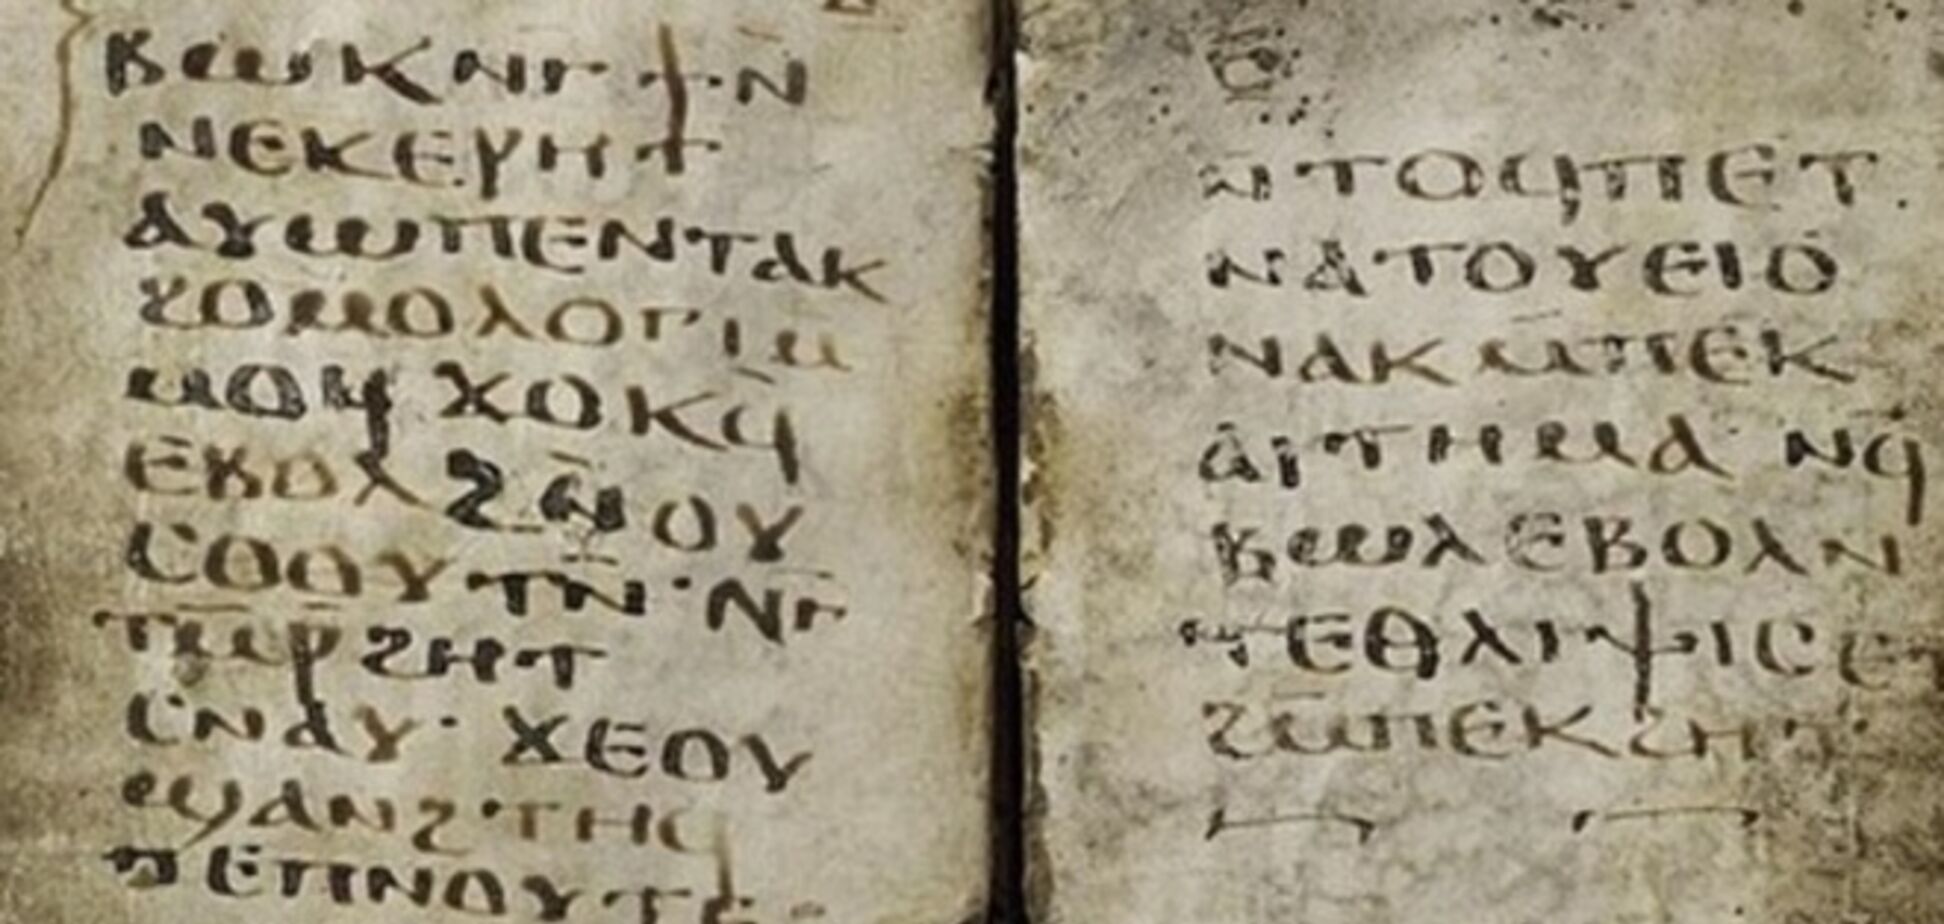 ⲃⲱⲕ ⲛⲅϯ ⲛ̄
ⲛⲉⲕⲉⲣⲏⲧ
ⲁⲩⲱ ⲡⲉⲛⲧⲁⲕ
ϩⲟⲙⲟⲗⲟⲅⲓ ⲙ̄
ⲙⲟϥ ϫⲟⲕϥ̄
ⲉⲃⲟⲗ ϩⲛ̄ ⲟⲩ
ⲥⲟⲟⲩⲧⲛ̄· ⲛⲅ̄
ⲧⲙ̄ⲣ̄ϩⲏⲧ
ⲥⲛⲁⲩ· ϫⲉ ⲟⲩ
ϣⲁⲛϩⲧⲏϥ
ⲡⲉ ⲡⲛⲟⲩⲧⲉ·
ⲛⲧⲟϥ ⲡⲉⲧ
ⲛⲁⲧⲟⲩⲉⲓⲟ
ⲛⲁⲕ ⲙ̄ⲡⲉⲕ
ⲁⲓⲧⲏⲙⲁ· ⲛϥ̄
ⲃⲱⲗ ⲉⲃⲟⲗ ⲛ
ⲧⲉⲑⲗⲓⲯⲓⲥ ⲉⲧ
ϩⲙ̄ ⲡⲉⲕϩⲏⲧ·